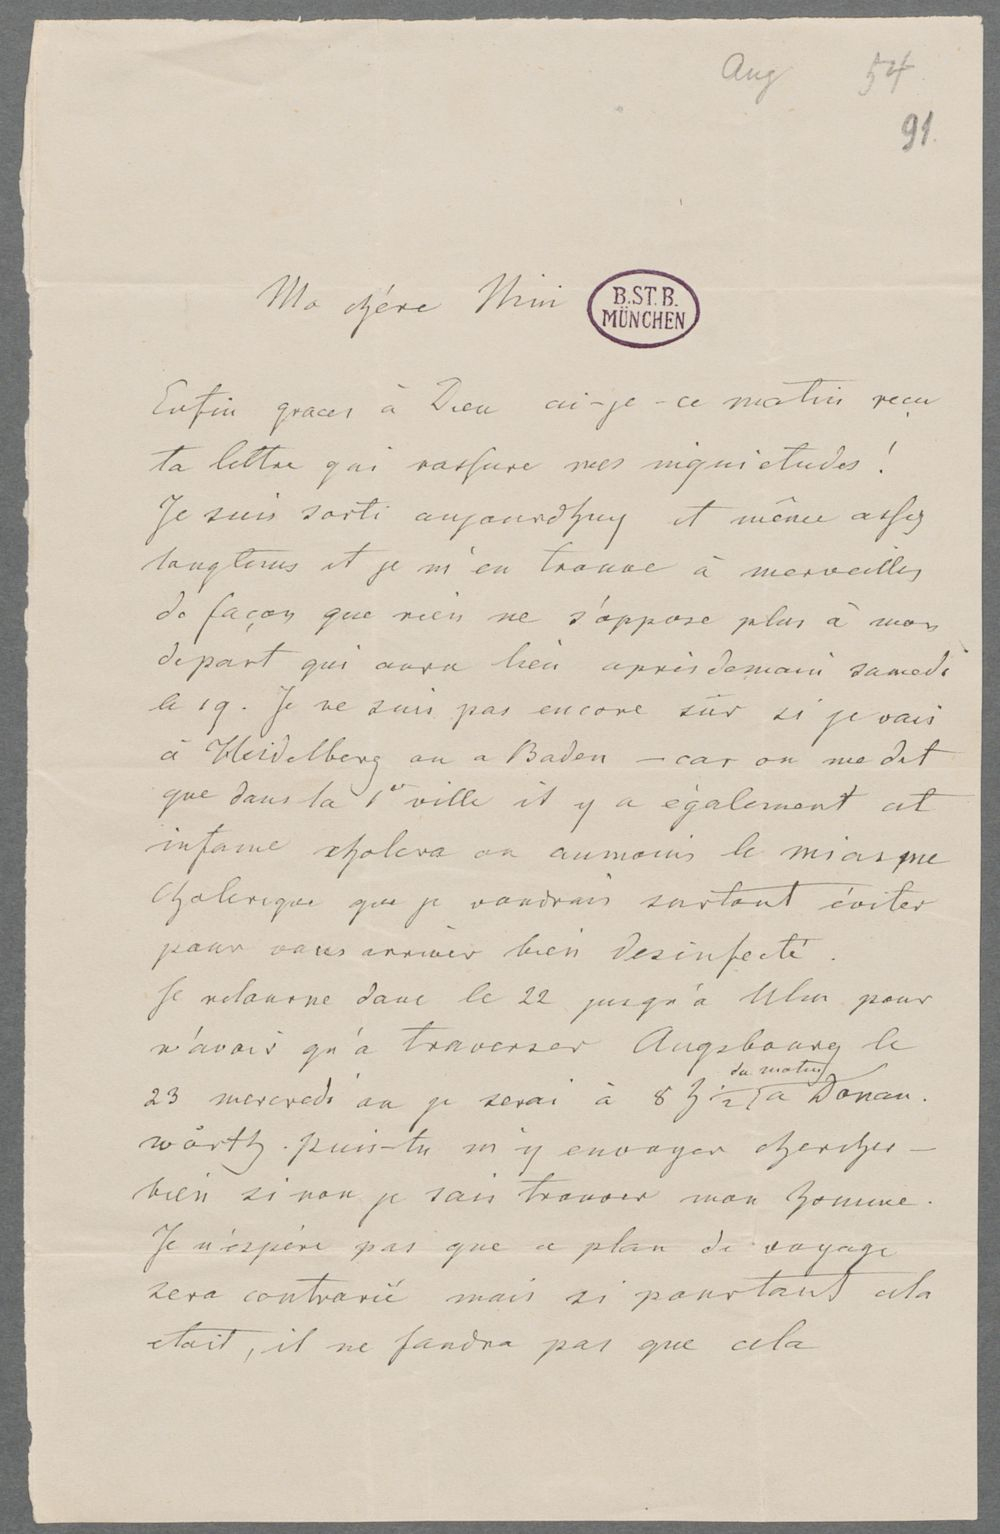 Aug 54
91.
Ma chére Mimi
B.ST.B.
MÜNCHEN
Enfin graces à Dieu ai-je-ce matin reçu
ta lettre qui rassure mes inquietudes!
Je suis sorti aujourdhuy et même assez
longtems et je m'en trouve à merveilles
de façon que rien ne s'oppose plus à mon
depart qui aura lieu apresdemain samedi
le 19. Je ne suis pas encore sûr si je vais
à Heidelberg ou a Baden – car on me dit
que dans la 1er ville il y a également cet
infame cholera ou aumoins le miasme
cholerique que je voudrais surtout éviter
pour vous arriver bien desinfecté.
Je retourne donc le 22 jusqu'à Ulm pour
n'avoir qu'à traverser Augsbourg le
du matin
23 mercredi ou je serai à 8 h 1/2 a Donau-
wörth. puis-tu m'y envoyer chercher –
bien si non je sais trouver mon homme.
Je n'espére pas que ce plan de voyage
sera contrarié mais si pourtant cela
etait, il ne faudra pas que cela